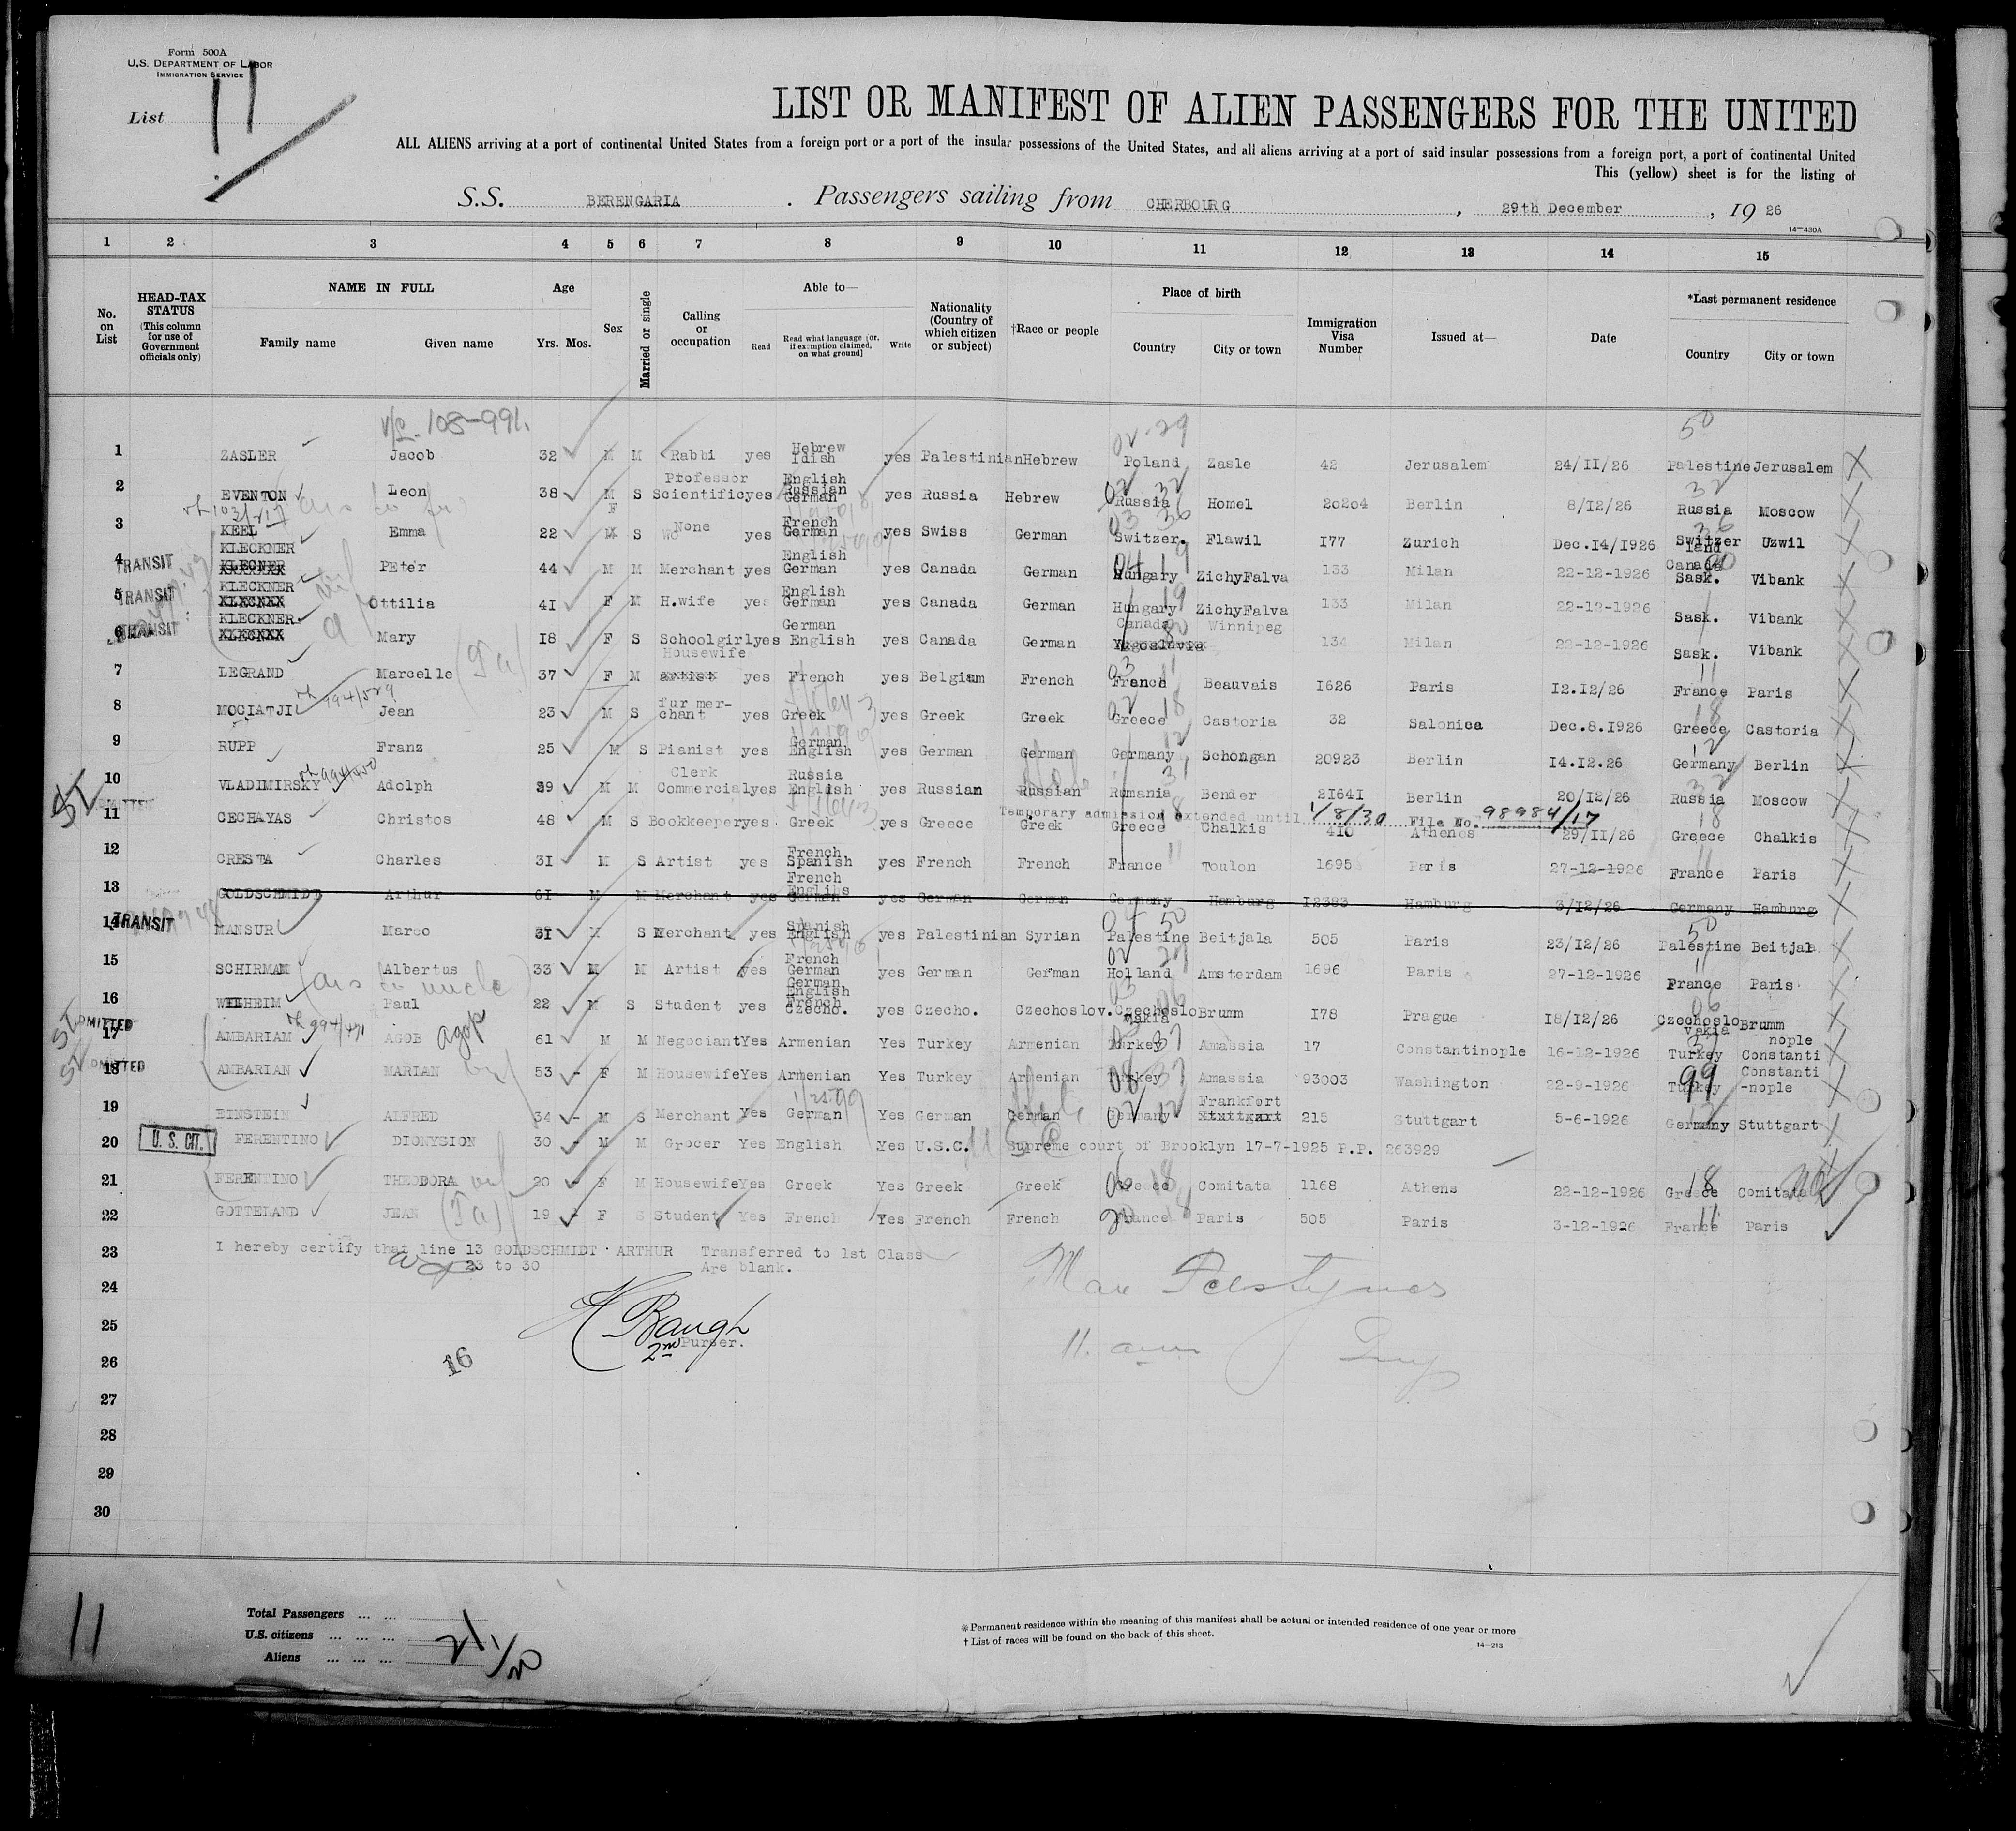 Form 500A
U.S. DEPARTMENT OF LABOR
IMMIGRATION SERVICE
List 11
LIST OR MANIFEST OF ALIEN PASSENGERS FOR THE UNITED
ALL ALIENS arriving at a port of continental United States from a foreign port or a port of the insular possessions of the United States, and all aliens arriving at a port of said insular possessions from a foreign port, a port of continental United
This (yellow) sheet is for the listing of
S.S. BERENGARIA . Passengers sailing from CHERBOURG , 29th December , 19 26
14-430A
1 2 3 4 5 6 7 8 9 10 11 12 13 14 15
No. on List
HEAD-TAX STATUS (This column for use of Government officials only)
NAME IN FULL Family name Given name
Age Yrs. Mos.
Sex
Married or single
Calling or occupation
Able to— Read Read what language [or, if exemption claimed, on what ground] Write
Nationality (Country of which citizen or subject)
†Race or people
Place of birth Country City or town
Immigration Visa Number
Issued at—
Date
*Last permanent residence Country City or town
108-991.
1 ZASLER Jacob 32 M M Rabbi yes Hebrew Idish yes Palestinian Hebrew Poland Zasle 42 Jerusalem 24/II/26 Palestine Jerusalem
2 EVENTON Leon 38 M S Professor Scientific yes English Russian German yes Russia Hebrew Russia Homel 20204 Berlin 8/12/26 Russia Moscow
3 KEEL Emma 22 F S None yes French German yes Swiss German Switzer. Flawil I77 Zurich Dec.I4/1926 Switzer land Uzwil
4 TRANSIT KLECKNER PEter 44 M M Merchant yes English German yes Canada German Hungary ZichyFalva 133 Milan 22-12-1926 Canada Sask. Vibank
5 TRANSIT KLECKNER Ottilia 4I F M H.wife yes English German yes Canada German Hungary ZichyFalva 133 Milan 22-12-1926 Sask. Vibank
6 TRANSIT KLECKNER Mary I8 F S Schoolgirl yes German English yes Canada German Canada Winnipeg Yugoslavia 134 Milan 22-12-1926 Sask. Vibank
7 LEGRAND Marcelle 37 F M Housewife artist yes French yes Belgium French France Beauvais I626 Paris I2.I2/26 France Paris
8 MOCIATJI 994/529 Jean 23 M S fur mer- chant yes Greek yes Greek Greek Greece Castoria 32 Salonica Dec.8.1926 Greece Castoria
9 RUPP Franz 25 M S Pianist yes German English yes German German Germany Schongan 20923 Berlin I4.I2.26 Germany Berlin
10 VLADIMIRSKY Adolph 39 M M Clerk Commercial yes Russia English yes Russian Russian Rumania Bender 2I64I Berlin 20/I2/26 Russia Moscow
Temporary admission extended until 1/8/30 File No. 98984/17
11 CECHAYAS Christos 48 M S Bookkeeper yes Greek yes Greece Greek Greece Chalkis 410 Athenes 29/II/26 Greece Chalkis
12 CRESTA Charles 3I M S Artist yes French Spanish yes French French France Toulon 1695 Paris 27-12-1926 France Paris
13 GOLDSCHMIDT Arthur 6I M M Merchant yes French Englihs German yes German German Germany Hamburg I2383 Hamburg 3/I2/26 Germany Hamburg
14 TRANSIT MANSUR Marco 3I M S Merchant yes Spanish English yes Palestinian Syrian Palestine Beitjala 505 Paris 23/12/26 Palestine Beitjala
15 SCHIRMAN Albertus 33 M M Artist yes French German yes German German Holland Amsterdam 1696 Paris 27-12-1926 France Paris
16 WILHEIM Paul 22 M S Student yes German English French Czecho. yes Czecho. Czechoslov. Czechoslo vakia Brumm I78 Prague I8/I2/26 Czechoslo vakia Brumm
17 AMBARIAM 994/491 AGOB agop 61 M M Negociant Yes Armenian Yes Turkey Armenian Turkey Amassia 17 Constantinople 16-12-1926 Turkey Constanti nople
18 AMBARIAN MARIAN 53 F M Housewife Yes Armenian Yes Turkey Armenian Turkey Amassia 93003 Washington 22-9-1926 Turkey Constanti -nople
19 EINSTEIN ALFRED 34 M S Merchant Yes German Yes German German Germany Frankfort Stuttgart 215 Stuttgart 5-6-1926 Germany Stuttgart
20 U. S. CIT. FERENTINO DIONYSION 30 M M Grocer Yes English Yes U.S.C. Supreme court of Brooklyn 17-7-1925 P.P. 263929
21 FERENTINO THEODORA 20 F M Housewife Yes Greek Yes Greek Greek Greece Comitata 1168 Athens 22-12-1926 Greece Comitata
22 GOTTELAND JEAN 19 F S Student Yes French Yes French French France Paris 505 Paris 3-12-1926 France Paris
23 I hereby certify that line 13 GOLDSCHMIDT ARTHUR Transferred to 1st Class
23 to 30 Are blank.
24
25 H Baugh
2nd Purser.
26 16
27
28
29
30
11
Total Passengers ... ...
U.S. citizens ... ... ... 21
Aliens ... ... ... 1/20
* Permanent residence within the meaning of this manifest shall be actual or intended residence of one year or more
† List of races will be found on the back of this sheet.
14-213